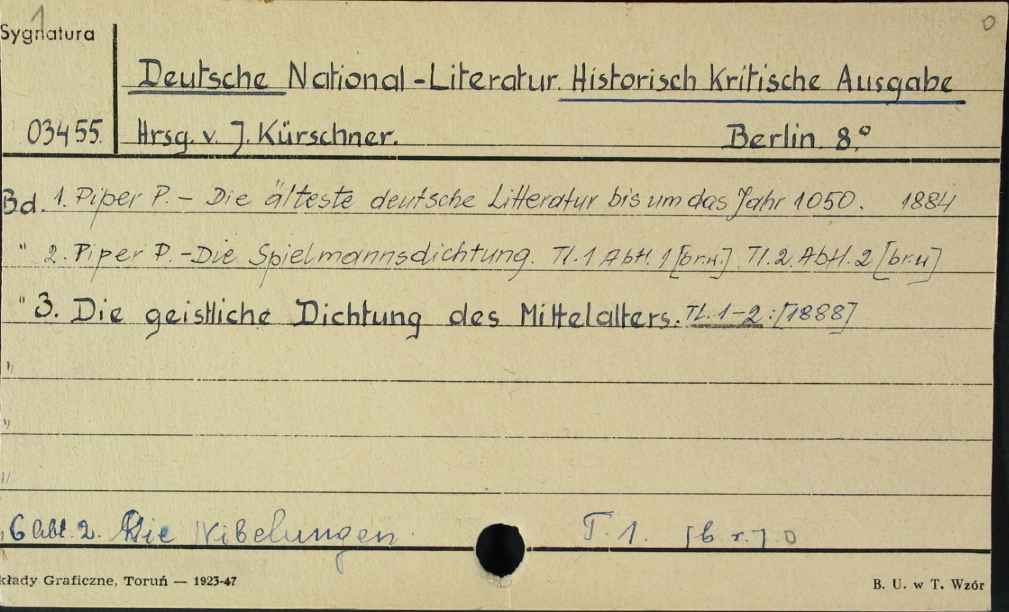 1
0
Sygnatura
Deutsche National-Literatur. Historisch Kritische Ausgabe
03455. Hrsg. v. J. Kürschner. Berlin. 8.°
Bd. 1. Piper P. - Die älteste deutsche Litteratur bis um das Jahr 1050. 1884
" 2. Piper P. - Die Spielmannsdichtung. Tl. 1 Abtl. 1 [br.w.] Tl. 2. Abtl. 2 [br.w]
" 3. Die geistliche Dichtung des Mittelalters. Tl. 1-2: [1888]
"
"
"
6 abt. 2. Die Nibelungen. T. 1. [b. r.] 0
kłady Graficzne, Toruń — 1923-47
B. U. w T. Wzór